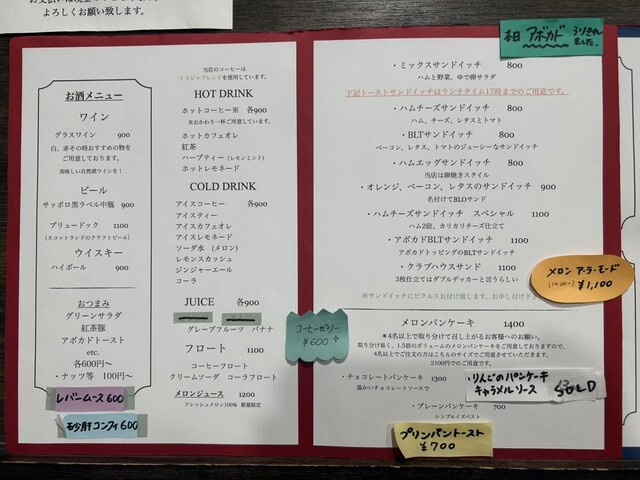 よろしくお願い致します。
お酒メニュー
ワイン
グラスワイン 900
白、赤その時おすすめの物を
ご用意しております。
美味しい自然派ワインを！
ビール
サッポロ黒ラベル中瓶 900
ブリュードック 1100
(スコットランドのクラフトビール)
ウイスキー
ハイボール 900
おつまみ
グリーンサラダ
紅茶豚
アボカドトースト
etc.
各600円～
・ナッツ等 100円～
レバームース 600
砂肝コンフィ 600
当店のコーヒーは
トラジャブレンドを使用しています。
HOT DRINK
ホットコーヒー※ 各900
※おかわり一杯ご用意しています。
ホットカフェオレ
紅茶
ハーブティー (レモンミント)
ホットレモネード
COLD DRINK
アイスコーヒー 各900
アイスティー
アイスカフェオレ
アイスレモネード
ソーダ水 (メロン)
レモンスカッシュ
ジンジャーエール
コーラ
JUICE 各900
グレープフルーツ バナナ
フロート 1100
コーヒーフロート
クリームソーダ コーラフロート
メロンジュース 1200
フレッシュメロン100% 数量限定
コーヒーゼリー
¥600
本日 アボカド うりきれ
ました。
・ミックスサンドイッチ 800
ハムと野菜、ゆで卵サラダ
下記トーストサンドイッチはランチタイム17時までのご用意です。
・ハムチーズサンドイッチ 800
ハム、チーズ、レタスとトマト
・BLTサンドイッチ 800
ベーコン、レタス、トマトのジューシーなサンドイッチ
・ハムエッグサンドイッチ 800
当店は卵焼きスタイル
・オレンジ、ベーコン、レタスのサンドイッチ 900
名付けてBLOサンド
・ハムチーズサンドイッチ スペシャル 1100
ハム2倍、カリカリチーズ仕立て
・アボカドBLTサンドイッチ 1100
アボカドトッピングのBLTサンドイッチ
・クラブハウスサンド 1100
3枚仕立てはダブルデッカーと言うらしい
※サンドイッチにピクルスお付け致します。お申し付け下さい
メロン ア・ラ・モード
¥1,100
メロンパンケーキ 1400
*4名以上で取り分けて召し上がるお客様へのお願い。
取り分け易く、1.5倍のボリュームのメロンパンケーキをご用意しておりますので、
4名以上でご注文の方はこちらのサイズでご用意させていただきます。
2100円でのご用意です。
・チョコレートパンケーキ
温かいチョコレートソースで
・りんごのパンケーキ
キャラメルソース
SOLD
・プレーンパンケーキ 700
シンプルイズベスト
プリンパントースト
¥700